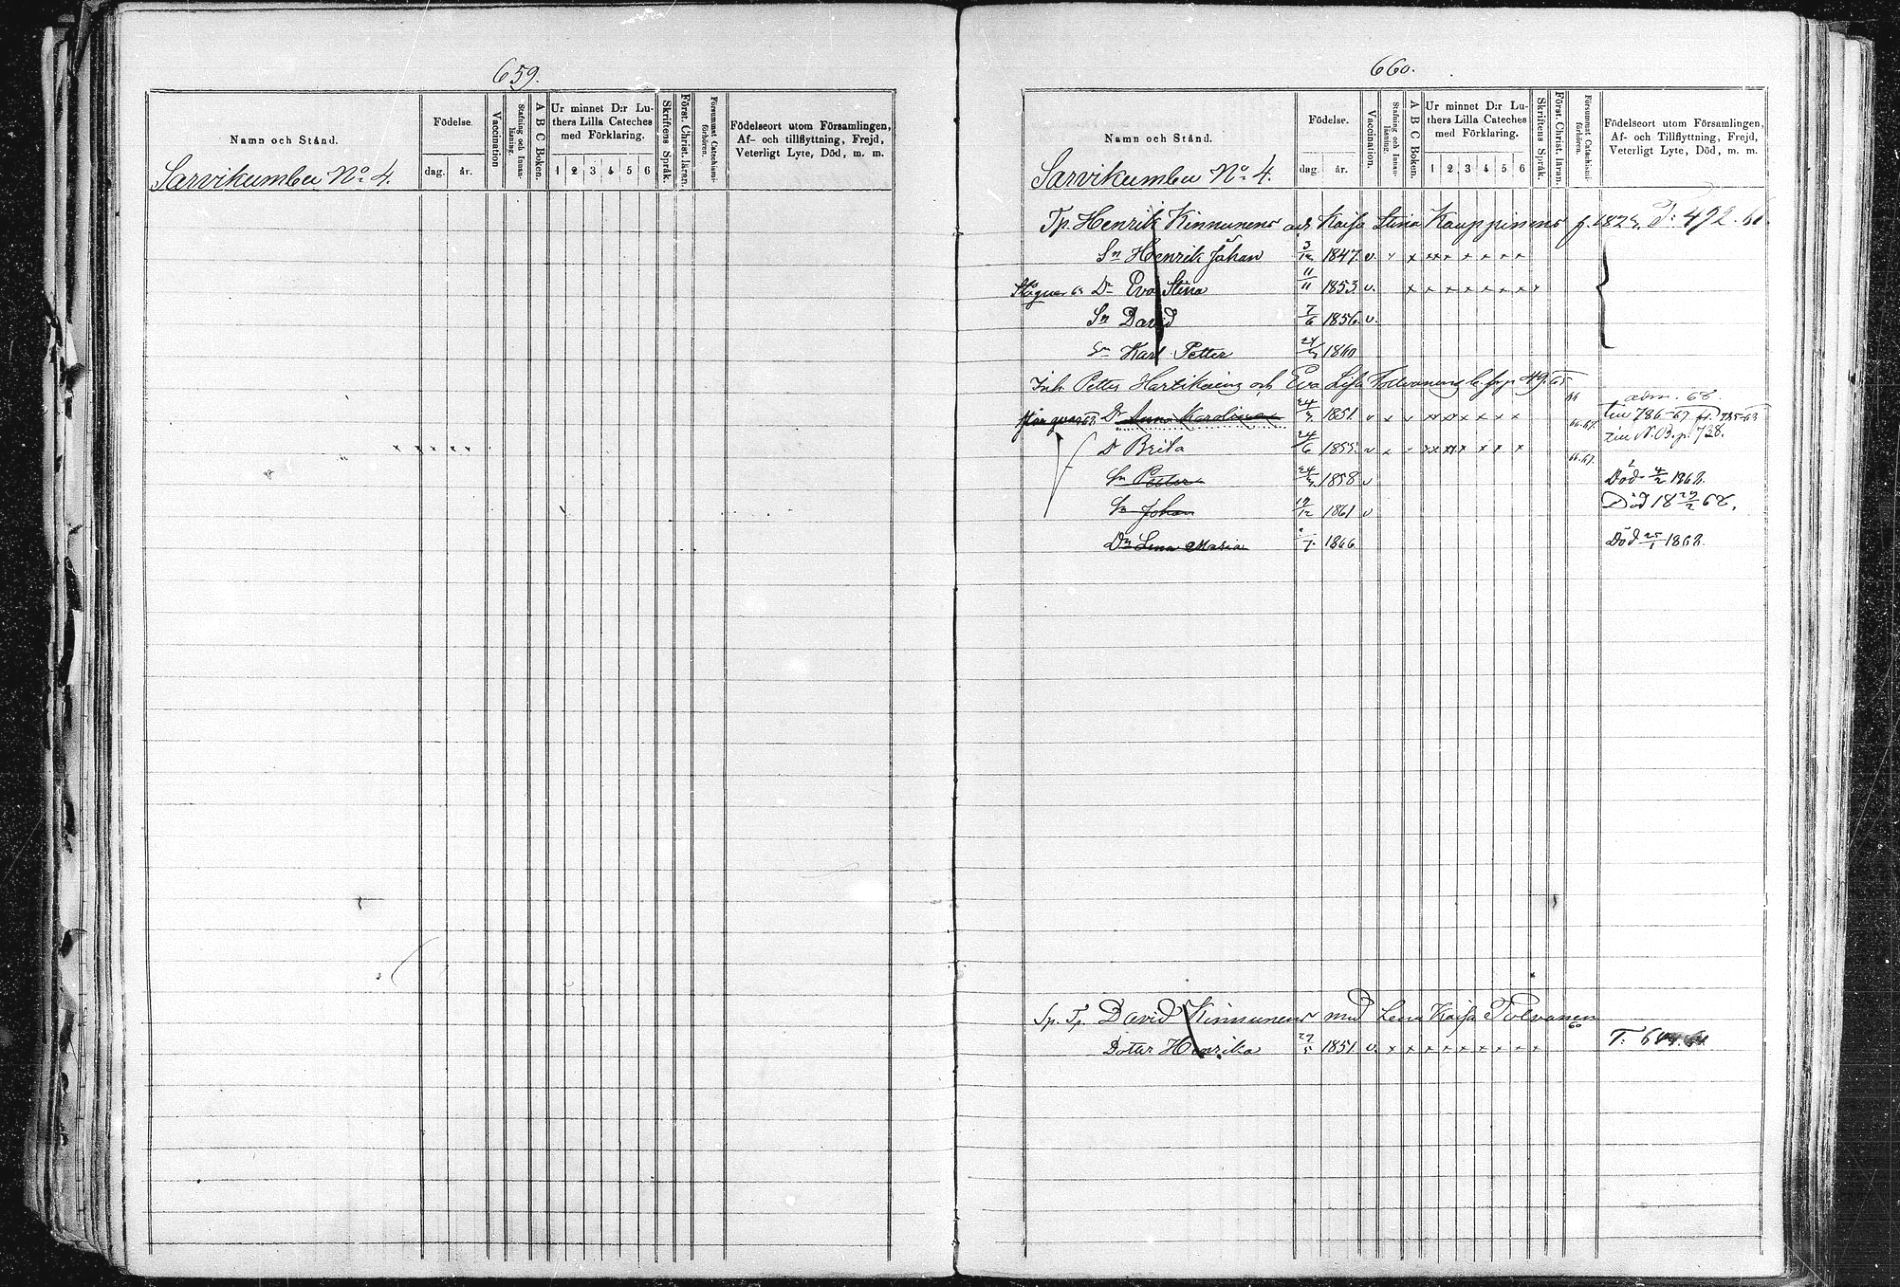 659.
Namn och Stånd.
Födelse.
dag.
år.
Vaccination
Stafning och Innan-läsning.
A B C Boken.
Ur minnet D:r Lu-
thers Lilla Cateches
med Förklaring.
1 2 3 4 5 6
Skriftens Språk.
Först. Christ. läran.
Försummat Catechismi-förhören.
Födelseort utom Församlingen,
Af- och tillflyttning, Frejd,
Veterligt Lyte, Död, m. m.
Sarvikumbu No 4.
660.
Namn och Stånd.
Födelse.
dag.
år.
Vaccination.
Stafning och Innan-läsning.
A B C Boken.
Ur minnet D:r Lu-
thers Lilla Cateches
med Förklaring.
1 2 3 4 5 6
Skriftens Språk.
Först. Christ. läran.
Försummat Catechismi-förhören.
Födelseort utom Församlingen,
Af- och Tillflyttning, Frejd,
Veterligt Lyte, Död, m. m.
Sarvikumbu No 4.
Tp. Henrik Kinnunens och Kaisa Stina Kauppinens
Sn Henrik Johan 3/12 1847 v. x x x x x x x x x
Dr Eva Stina 11/11 1853 v. x x x x x x x x
Sn David 7/6 1856 v.
Sn Karl Petter 1860
Inh. Petter Hartikainens och Eva Lisa Tolvanens
Dr Anna Karolina 24/ 1851 v x x x x x x x x
Dr Brita 24/6 1855 v x x x x x x x
Sn Petter 24/ 1858 v Död 4/2 1868.
Sn Johan 19/12 1861 v Död 18 29/2 68.
Dr Lena Maria 1866 Död 25/1 1868
Sp. Tp. David Kinnunens med Lena Kaisa Tolvanen
Dotter Henrika 27/5 1851 v. x x x x x x x x x T.